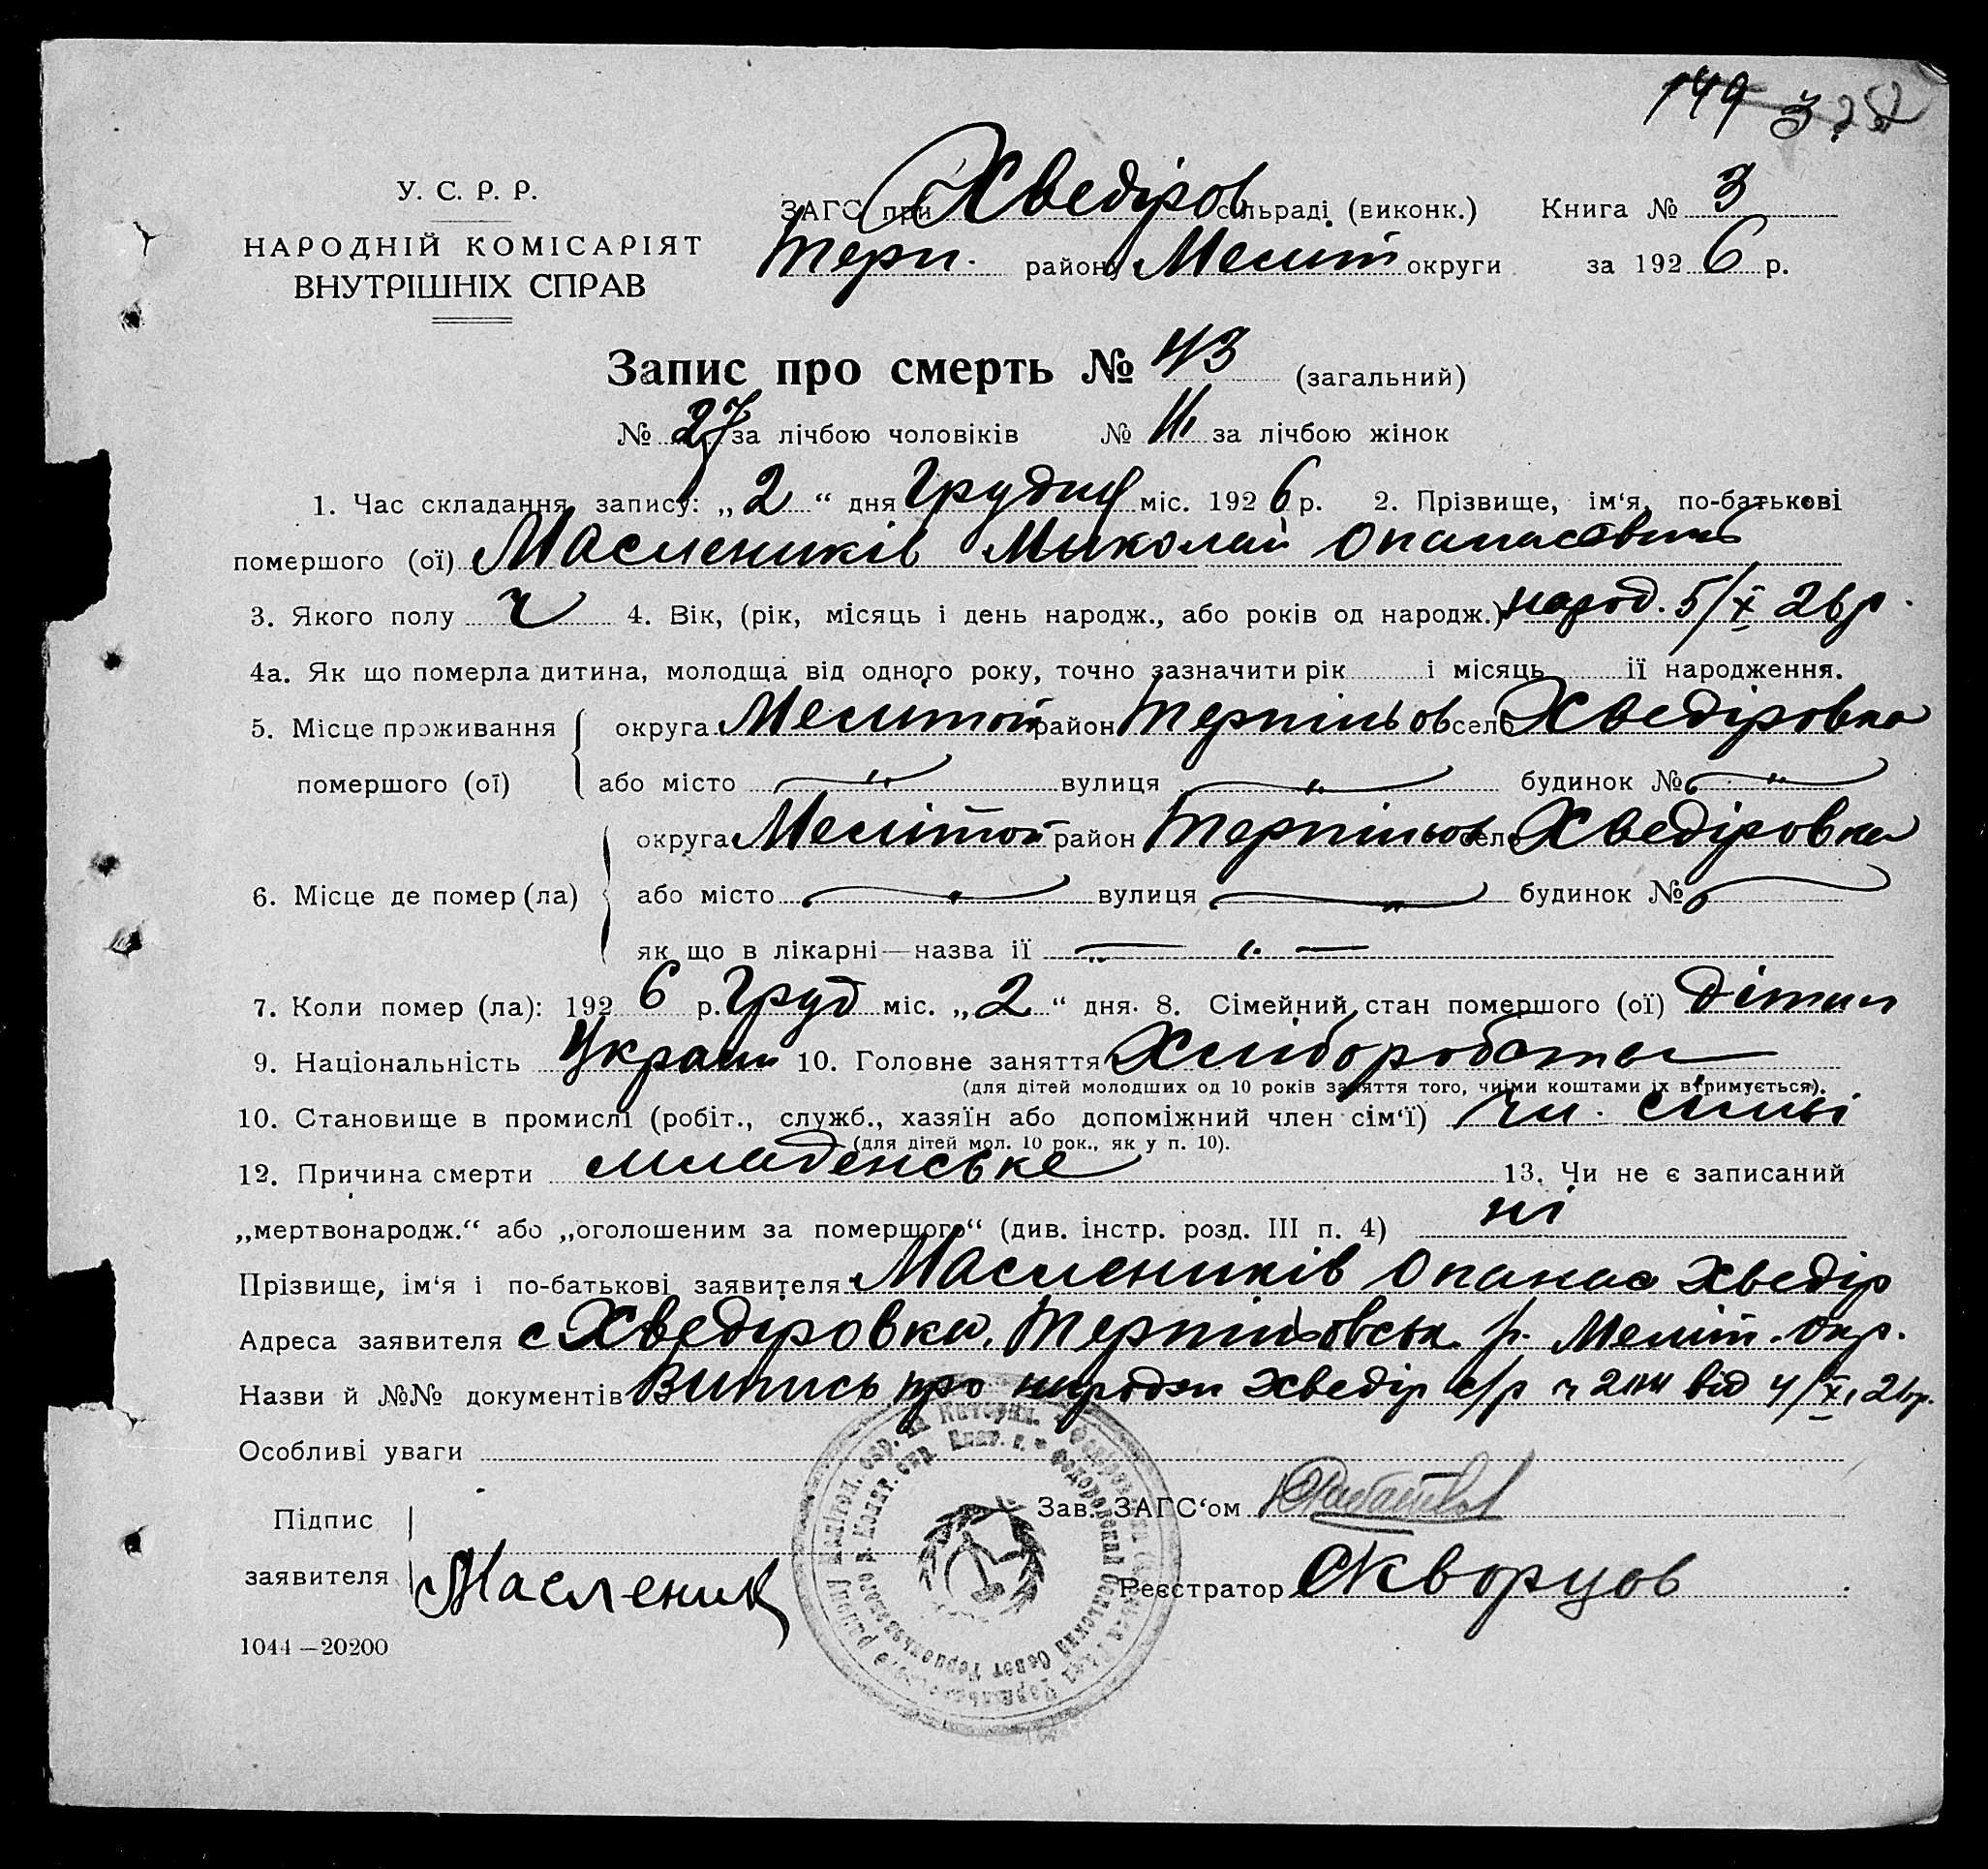 149 3.
У. С. Р. Р.
НАРОДНІЙ КОМІСАРІЯТ
ВНУТРІШНІХ СПРАВ
ЗАГС при Хведіров сільраді (виконк.) Книга № 3
Терп. району Меліт округи за 1926 р.
Запис про смерть № 43 (загальний)
№ 27 за лічбою чоловіків № за лічбою жінок
1. Час складання запису: „2“ дня Грудня міс. 1926 р. 2. Прізвище, ім‘я, по-батькові
помершого (ої) Маслеників Миколай Опанасович
3. Якого полу ч 4. Вік, (рік, місяць і день народж., або років од народж.) народ. 5/X 26 р.
4а. Як що померла дитина, молодща від одного року, точно зазначити рік і місяць її народження.
5. Місце проживання округа Меліпол район Терпіньов село Хведіровка
помершого (ої) або місто вулиця будинок №
округа Меліпол район Терпіньов село Хведіровка
6. Місце де помер (ла) або місто вулиця будинок №
як що в лікарні—назва її
7. Коли помер (ла): 1926 р. Груд міс. „2“ дня. 8. Сімейний стан помершого (ої) дітин
9. Національність Украін 10. Головне заняття Хліборобство
(для дітей молодших од 10 років заняття того, чиїми коштами їх втримується).
10. Становище в промислі (робіт., служб., хазяїн або допоміжний член сім‘ї) чл. симьі
(для дітей мол. 10 рок., як у п. 10).
12. Причина смерти младенське 13. Чи не є записаний
„мертвонародж.“ або „оголошеним за помершого“ (див. інстр. розд. III п. 4) ні
Прізвище, ім‘я і по-батькові заявителя Маслеників Опанас Хведір
Адреса заявителя с Хведіровка, Терпіньовськ р. Меліт. окр.
Назви й №№ документів Випись про народж Хведір с/р ч від 4/XI 26 р.
Особливі уваги
Підпис Зав. ЗАГС‘ом
заявителя Масленик Реєстратор Скворцов
1044—20200